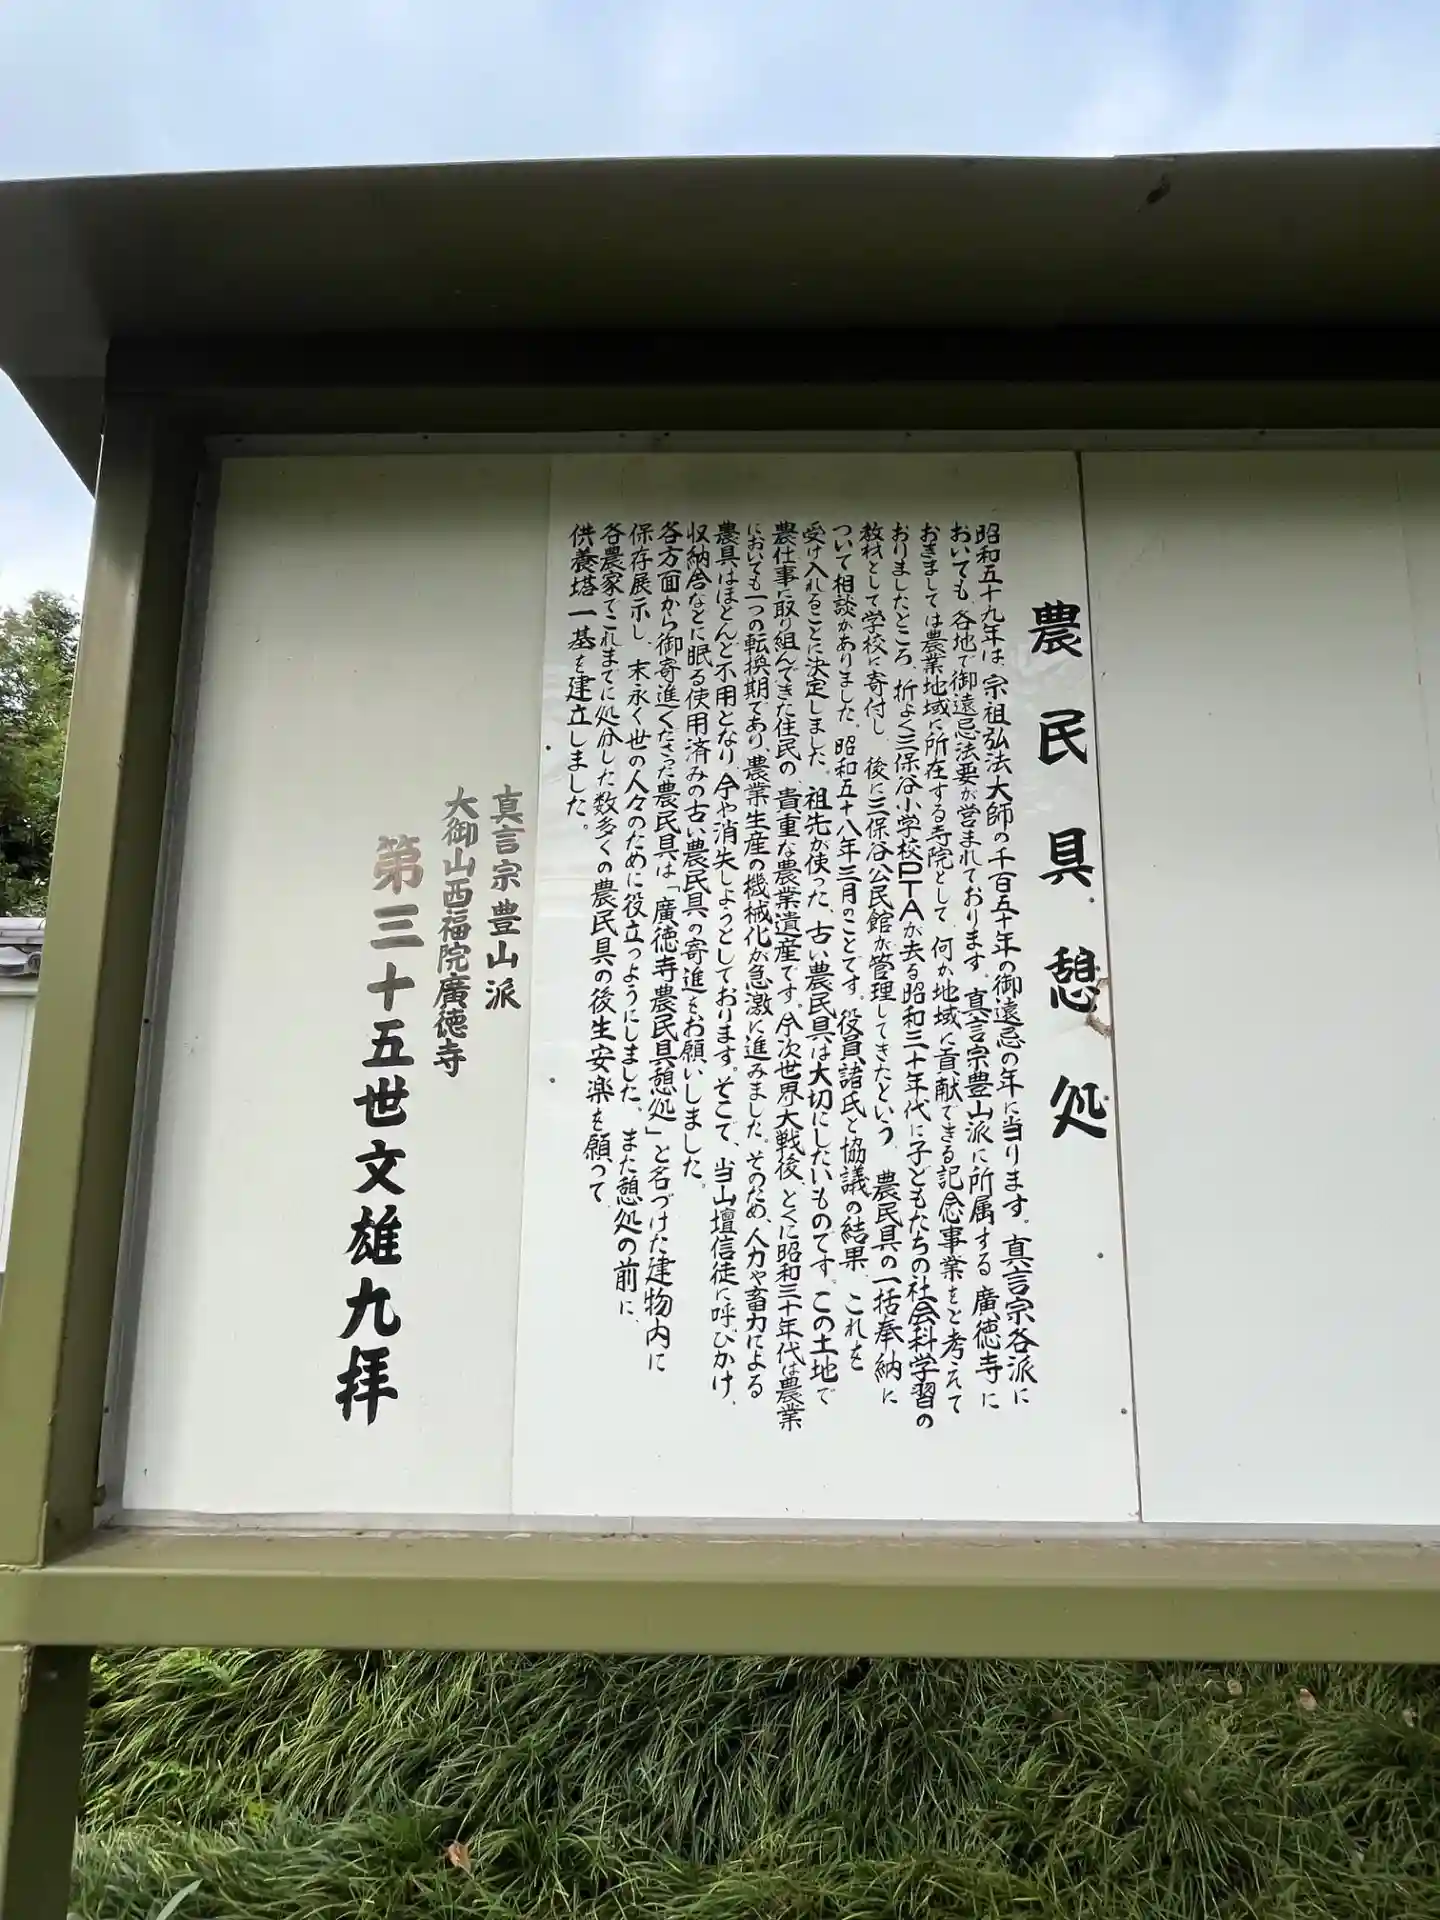 農民具憩処
昭和五十九年は、宗祖弘法大師の千百五十年の御遠忌の年に当ります。真言宗各派に
おいても、各地で御遠忌法要が営まれております。真言宗豊山派に所属する廣徳寺に
おきましては農業地域に所在する寺院として、何か地域に貢献できる記念事業をと考えて
おりましたところ、折よく三保谷小学校PTAが去る昭和三十年代に子どもたちの社会科学習の
教材として学校に寄付し、後に三保谷公民館が管理してきたという、農民具の一括奉納に
ついて相談がありました。昭和五十八年三月のことです。役員、諸氏と協議の結果、これを
受け入れることに決定しました。祖先が使った、古い農民具は大切にしたいものです。この土地で
農仕事に取り組んできた住民の、貴重な農業遺産です。今次世界大戦後、とくに昭和三十年代は農業
においても一つの転換期であり、農業生産の機械化が急激に進みました。そのため、人力や畜力による
農具はほとんど不用となり、今や消失しようとしております。そこで、当山壇信徒に呼びかけ、
収納舎などに眠る使用済みの古い農民具の寄進をお願いしました。
各方面から御寄進くださった農民具は「廣徳寺農民具憩処」と名づけた建物内に
保存展示し、末永く世の人々のために役立つようにしました。また憩処の前に、
各農家でこれまでに処分した数多くの農民具の後生安楽を願って、
供養塔一基を建立しました。
真言宗豊山派
大御山西福院廣徳寺
第三十五世文雄九拝